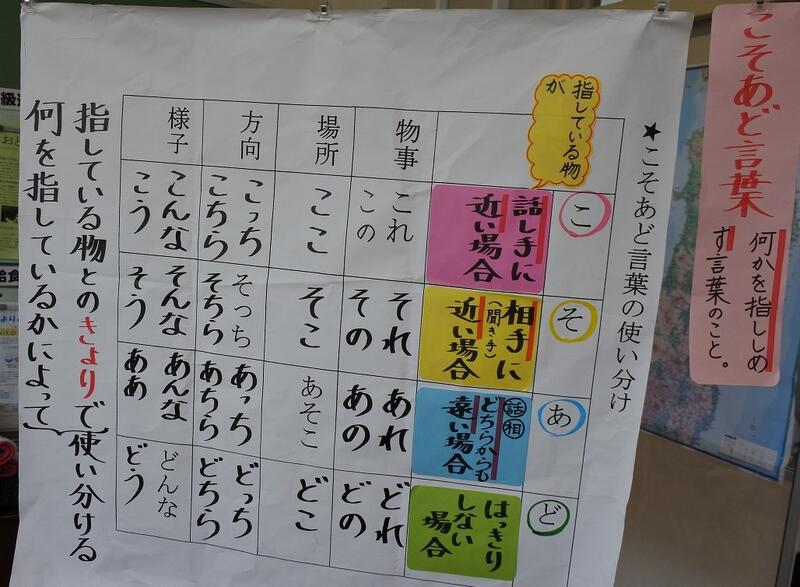 こそあど言葉
何かを指ししめ
す言葉のこと。
★こそあど言葉の使い分け
こ
そ
あ
ど
指している物
が
話し手に
近い場合
相手に
(聞き手)
近い場合
話 相
どちらからも
遠い場合
はっきり
しない
場合
物事
これ
この
それ
その
あれ
あの
どれ
どの
場所
ここ
そこ
あそこ
どこ
方向
こっち
こちら
そっち
そちら
あっち
あちら
どっち
どちら
様子
こんな
こう
そんな
そう
あんな
ああ
どんな
どう
指している物とのきょりで使い分ける
何を指しているかによって